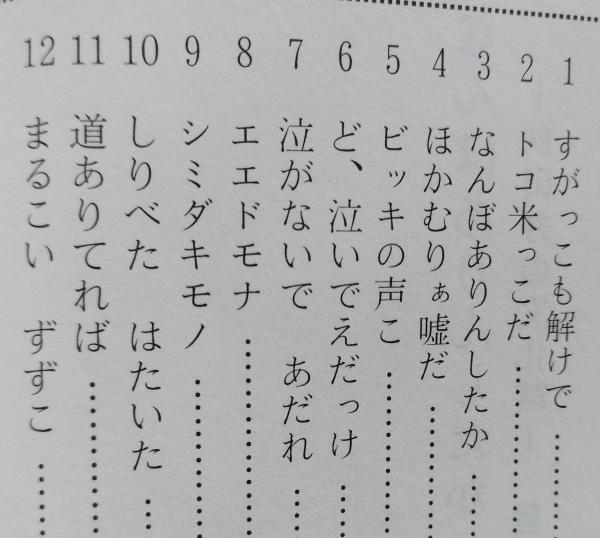 1 すがっこも解けで
2 トコ米っこだ
3 なんぼありんしたか
4 ほかむりぁ嘘だ
5 ビッキの声こ
6 ど、泣いでえだっけ
7 泣がないで　あだれ
8 エエドモナ
9 シミダキモノ
10 しりべた　はたいた
11 道ありてれば
12 まるこい　ずずこ